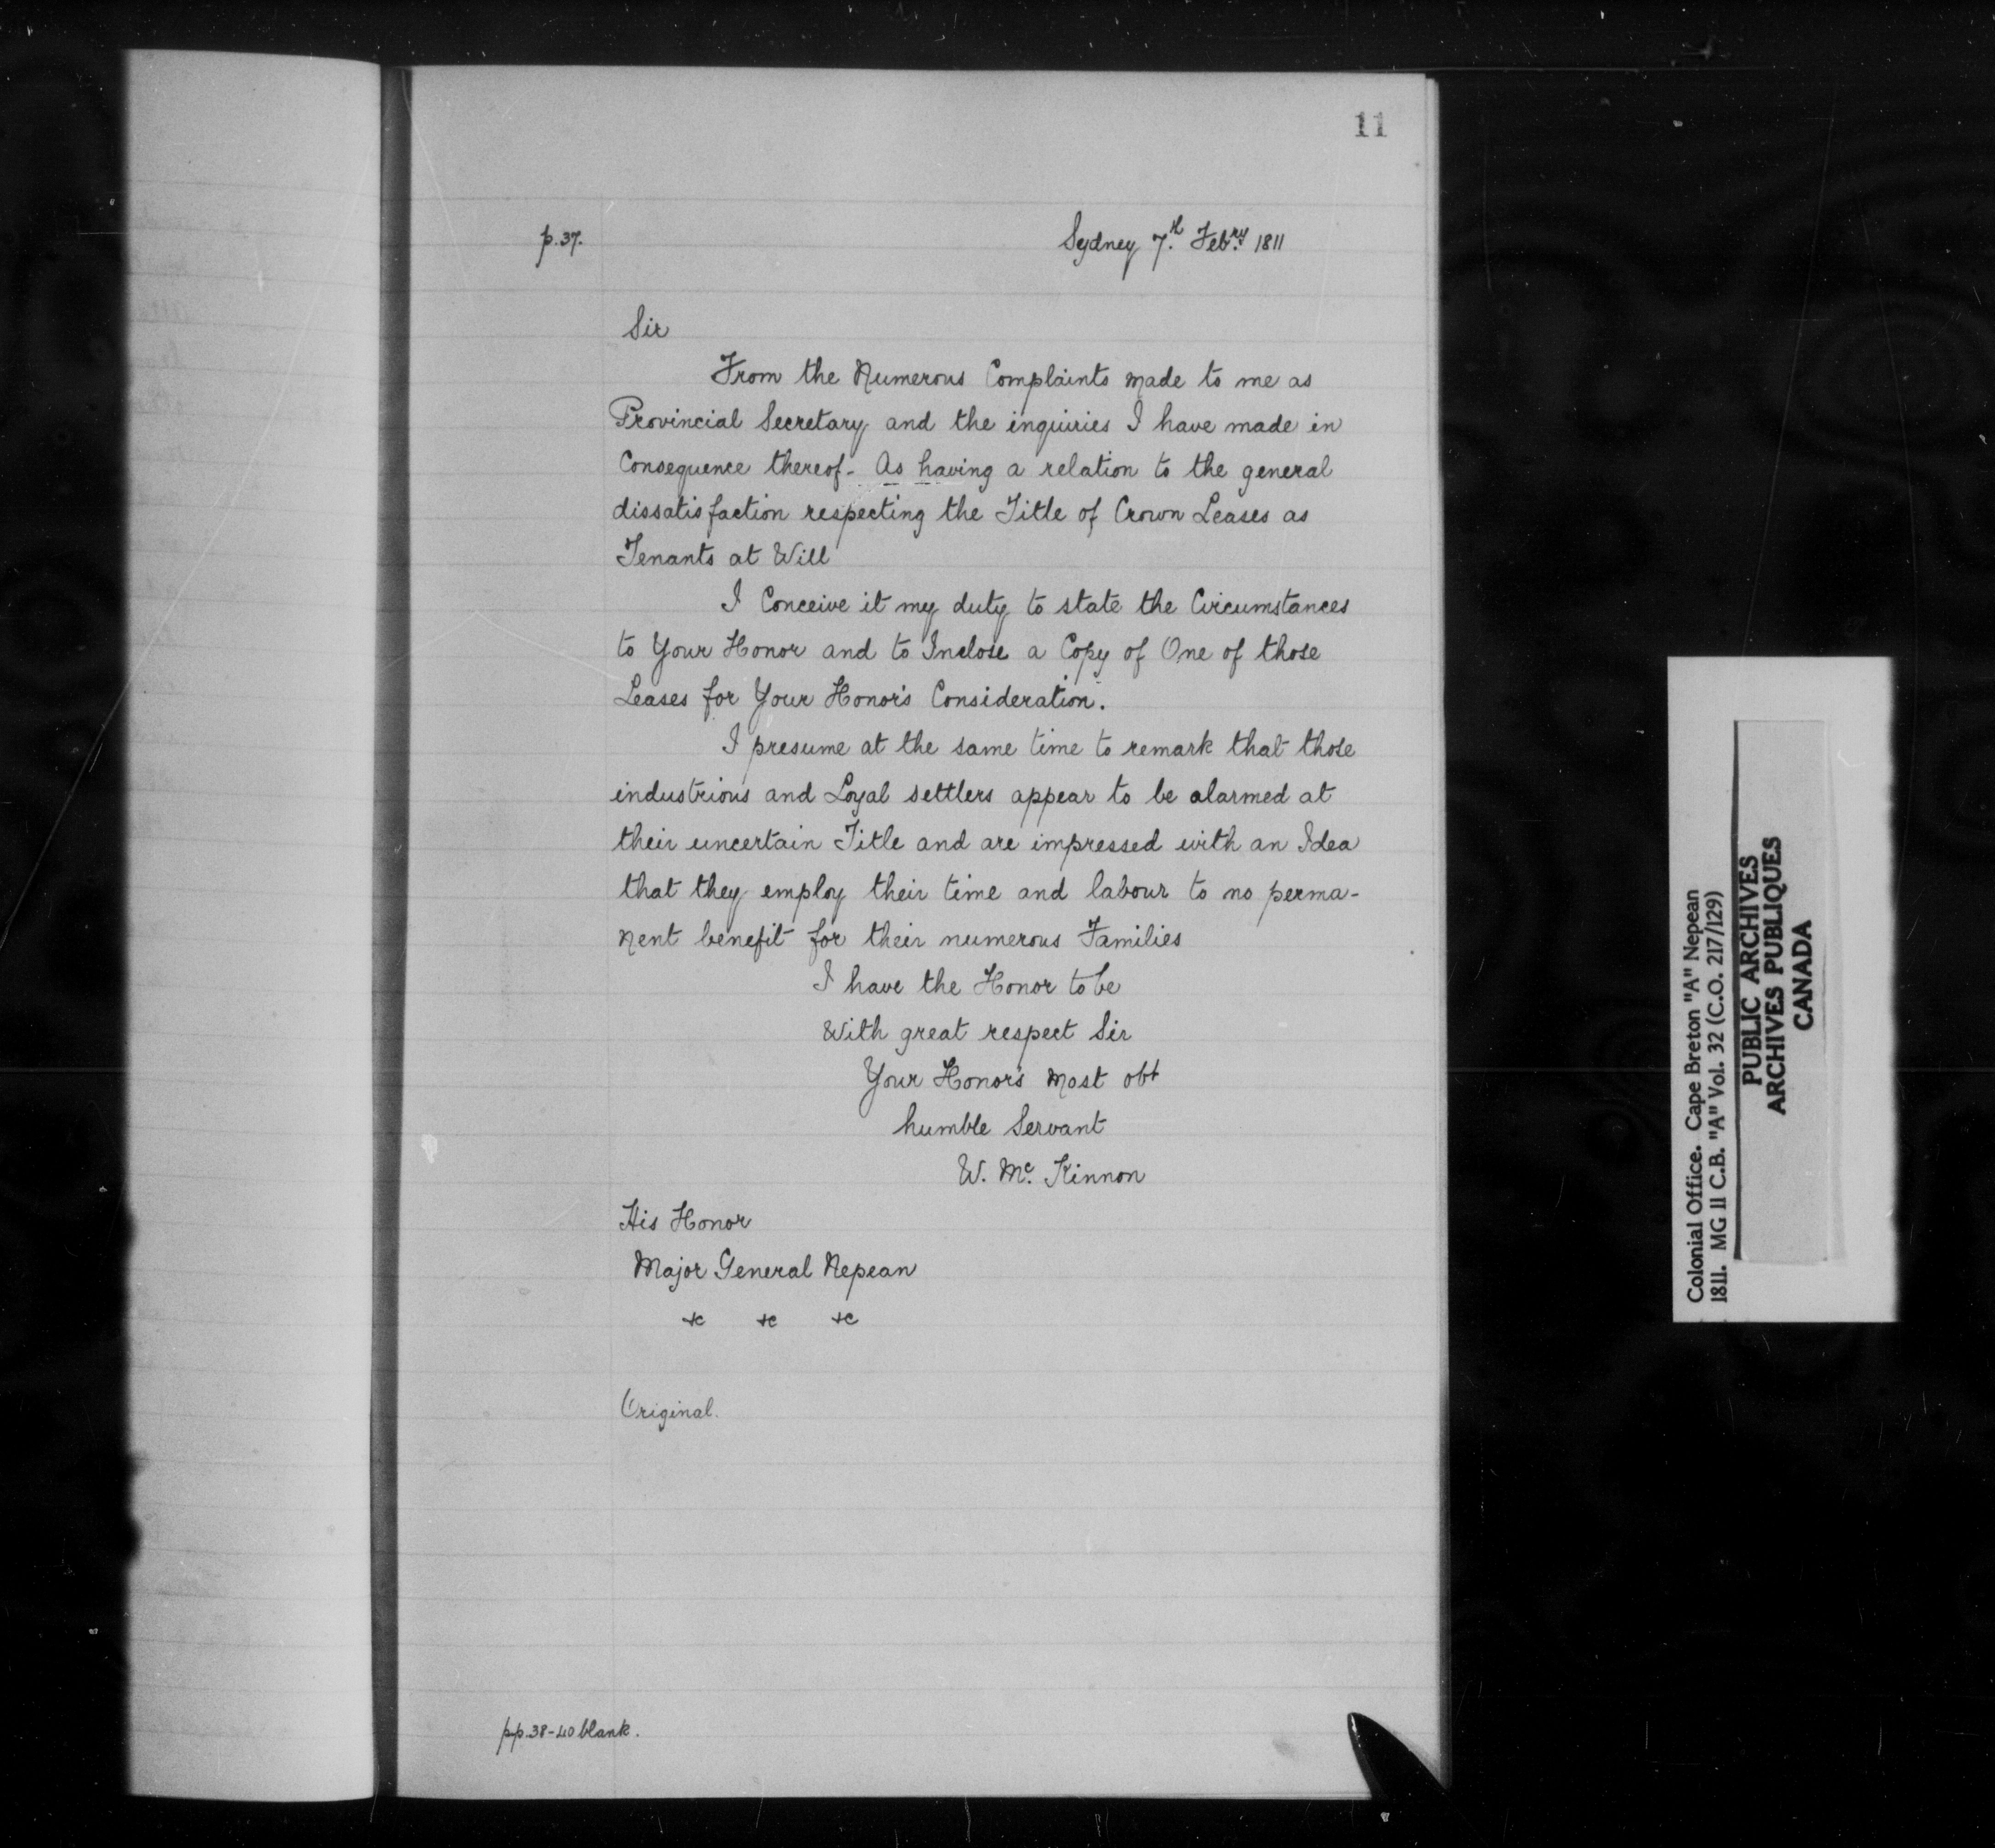 11
p.37.
Sydney 7.th Feb.ry 1811
Sir
From the Numerous Complaints made to me as
Provincial Secretary and the inquiries I have made in
Consequence thereof - As having a relation to the general
dissatisfaction respecting the Title of Crown Leases as
Tenants at Will
I Conceive it my duty to state the Circumstances
to Your Honor and to Inclose a Copy of One of those
Leases for Your Honor's Consideration.
I presume at the same time to remark that those
industrious and Loyal settlers appear to be alarmed at
their uncertain Title and are impressed with an Idea
that they employ their time and labour to no perma-
nent benefit for their numerous Families
I have the Honor to be
With great respect Sir
Your Honor's Most obt
humble Servant
W. Mc. Kinnon
His Honor
Major General Nepean
&c &c &c
Original.
pp.38-40 blank.
Colonial Office. Cape Breton "A" Nepean
1811. MG 11 C.B. "A" Vol. 32 (C.O. 217/129)
PUBLIC ARCHIVES
ARCHIVES PUBLIQUES
CANADA